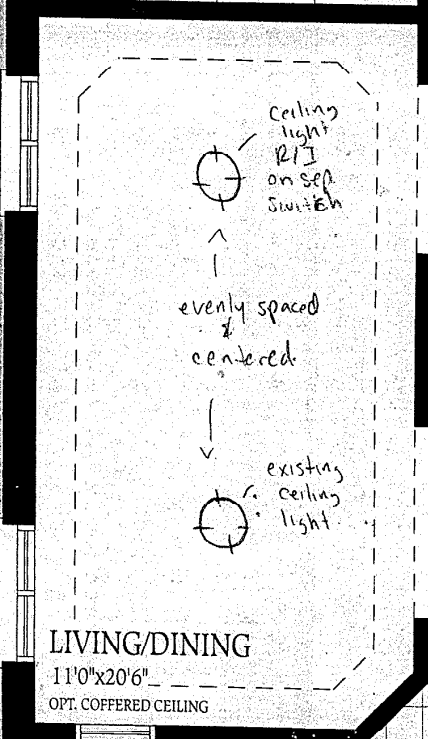 ceiling
light
R/I
on sep.
switch
evenly spaced
&
centered.
existing
ceiling
light
LIVING/DINING
11'0"x20'6"
OPT. COFFERED CEILING